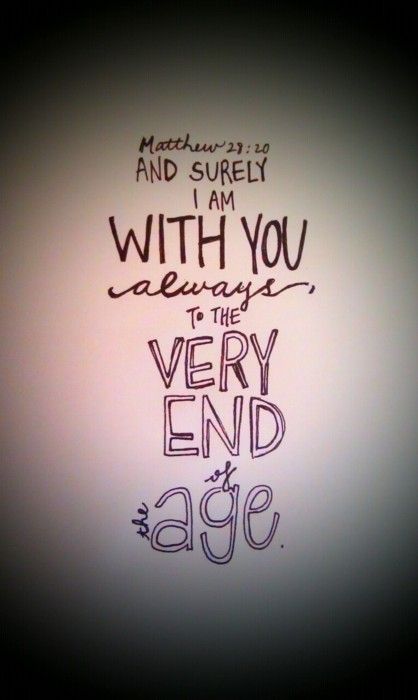 Matthew 28:20
AND SURELY
I AM
WITH YOU
always,
TO THE
VERY
END
of
the age.